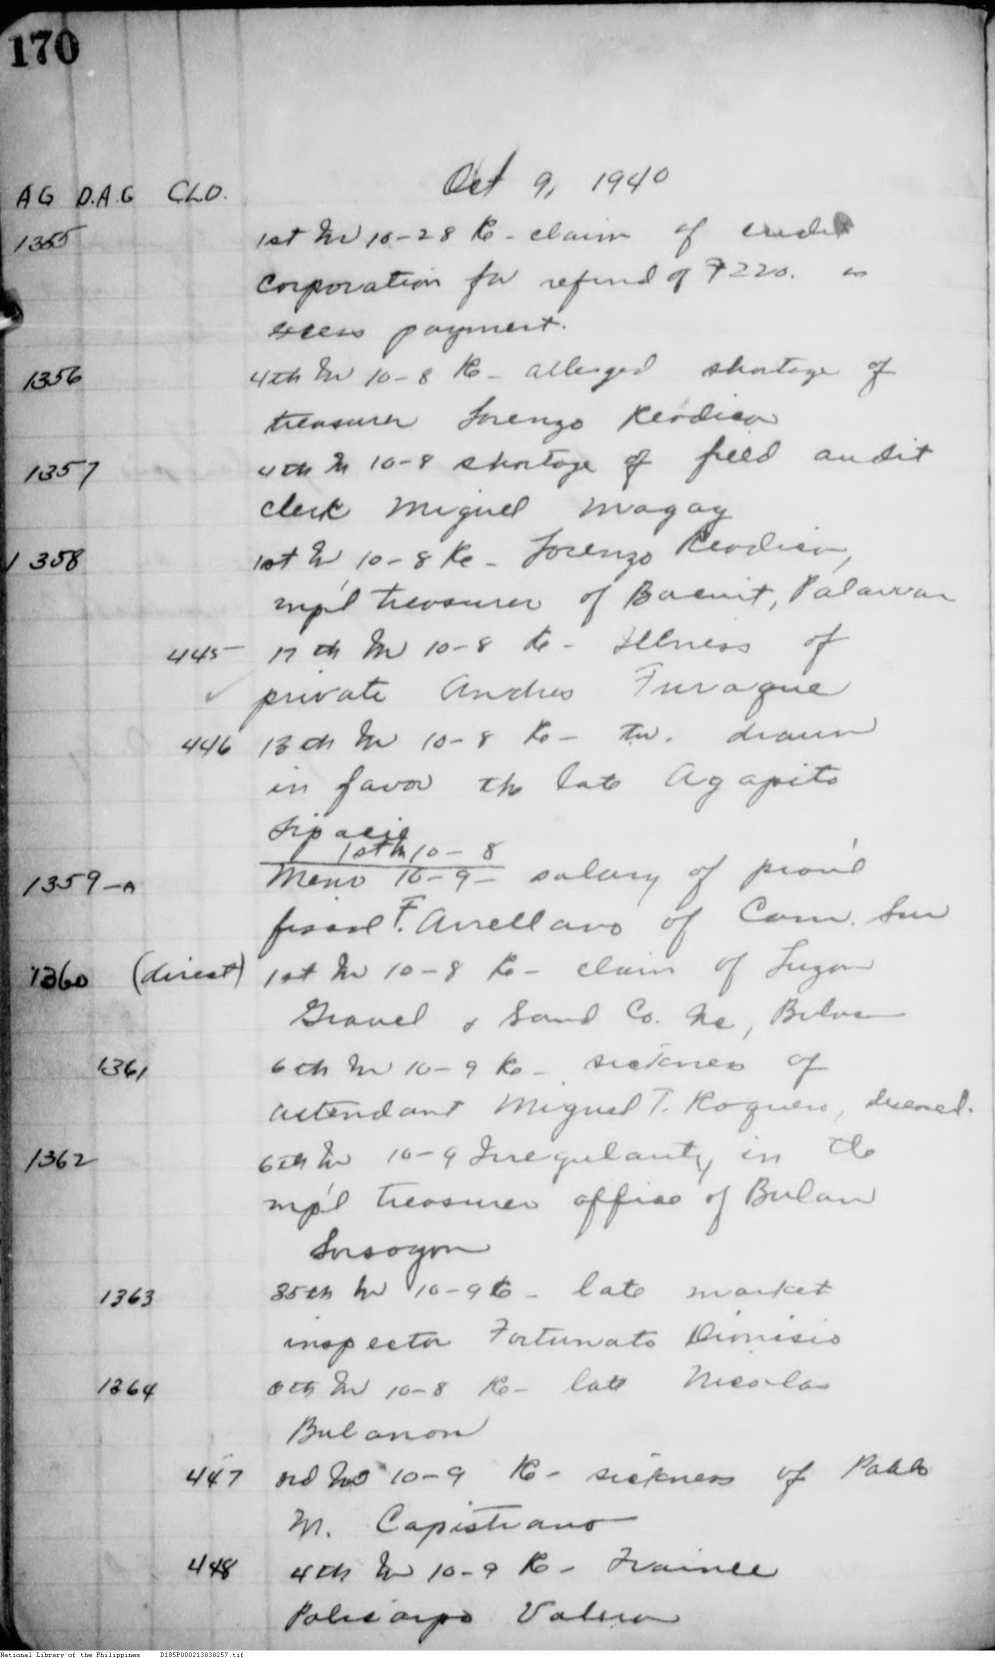 170
Oct 9, 1940
AG D.A.G CLD.
1355 1st In 10-28 Re - claim of credit
corporation for refund of ₱220. as
excess payment.
1356 4th In 10-8 Re - alleged shortage of
treasurer Lorenzo Reodica
1357 4th In 10-8 shortage of field audit
clerk Miguel Magay
1358 1st In 10-8 Re - Lorenzo Reodica,
mp'l treasurer of Bacuit, Palawan
445 17th In 10-8 Re - Illness of
private Andres Turague
446 13th In 10-8 Re - tw. drawn
in favor the late Agapito
1st In 10-8
1359-A Memo 10-9- salary of prov'l
fiscal F. Arrellano of Cam. Sur
1360 (direct) 1st In 10-8 Re - claim of Luzon
Gravel & Sand Co. Inc,
1361 6th In 10-9 Re - sickness of
attendant Miguel T. Roquero, deceased.
1362 6th In 10-9 Irregularity in the
mp'l treasurer office of Bulan
Sorsogon
1363 35th In 10-9 Re - late market
inspector Fortunato Dionisio
1364 6th In 10-8 Re - late Nicolas
Bulanon
447 3rd In 10-9 Re - sickness of Pablo
M. Capistrano
448 4th In 10-9 Re - Trainee
Policarpo Valera
National Library of the Philippines D185P000213838257.tif